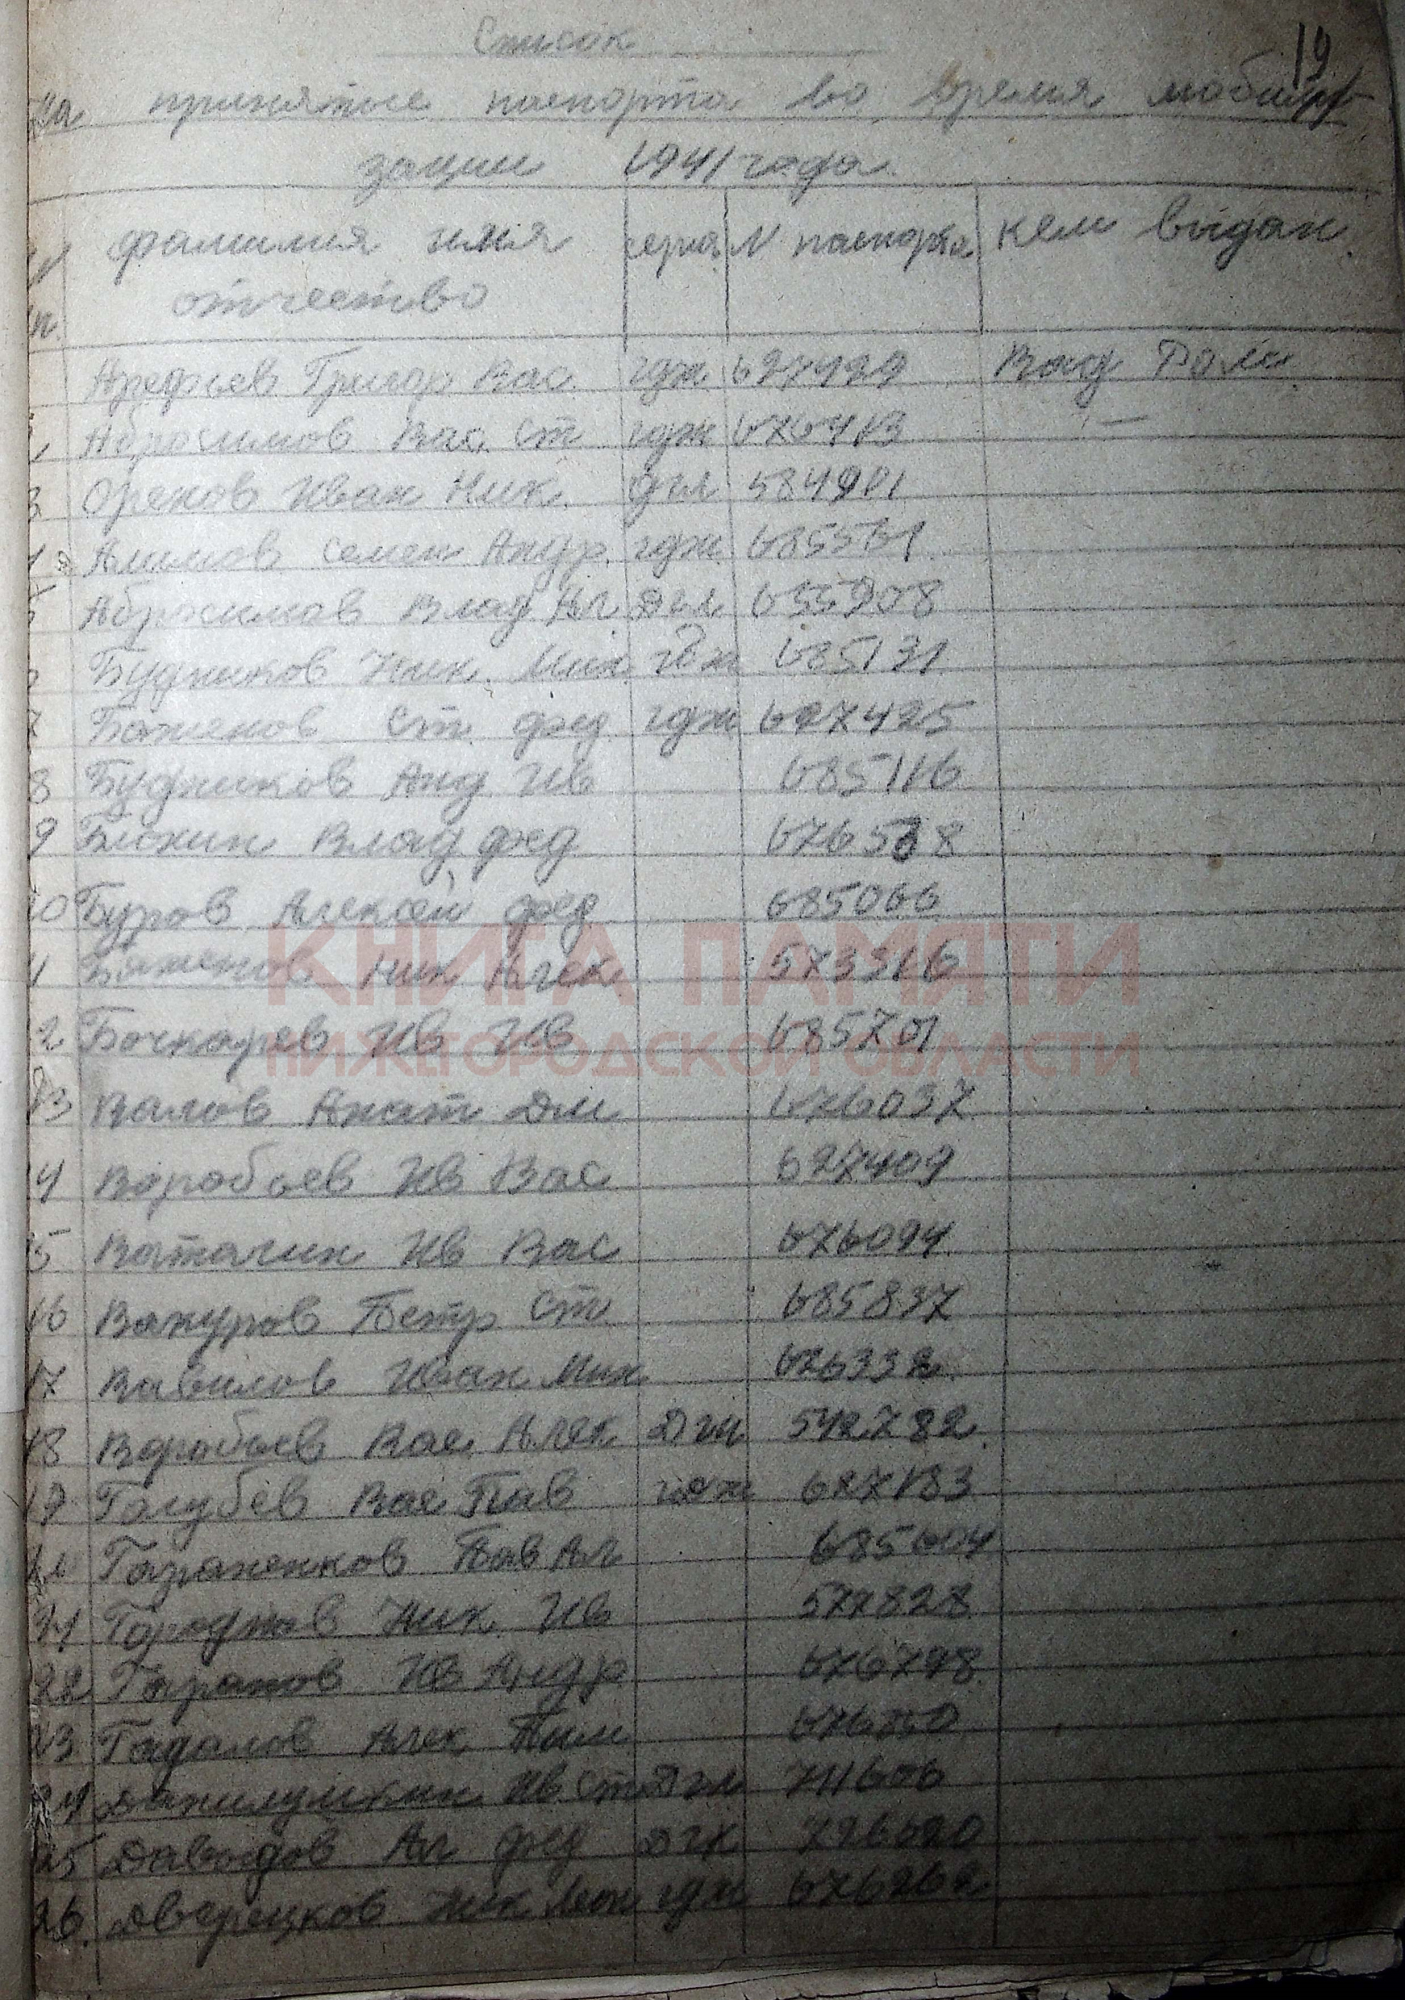 19
Список
на принятые паспорта во время мобили
зации 1941 года.
фамилия имя серия N паспорта кем выдан
п. отчество
Арефьев Григор Вас. гдж 627429 Вад Ром
2 Абросимов Вас. Ст гдж 676413 —
3 Орехов Иван Ник. дгл 584901
4 Алимов Семен Андр. гдж
5 Абросимов Влад Ал Дгл 655908
Будников Ник. Мих. гдж 685131
7 Баженов Ст фед гдж 627425
8 Будников Анд Ив 685116
9 Блохин Влад фед 676538
10 Буров Алексей фед 685066
КНИГА ПАМЯТИ
11 Баженов Ник Алек 573316
12 Бочкарев Ив Ив 685701
НИЖЕГОРОДСКОЙ ОБЛАСТИ
13 Валов Анат Дм 676037
14 Воробьев Ив Вас 627409
15 Ватагин Ив Вас 676094
16 Вахуров Петр Ст 685837
17 Вавилов Иван Мих 676332
18 Воробьев Вас. Алек Дгл 542782
19 Голубев Вас Пав гдж 627183
20 Гараненков Пав Ал
21 Городнов Ник. Ив 577828
22 Гаранов Ив Андр 676798
23 Гадалов Алек Тим
24 Данилушкин Ив Ст Дгл 711606
25 Давыдов Ал фед дгж 726620
26. Дворецков Ник Леон гдж 676262